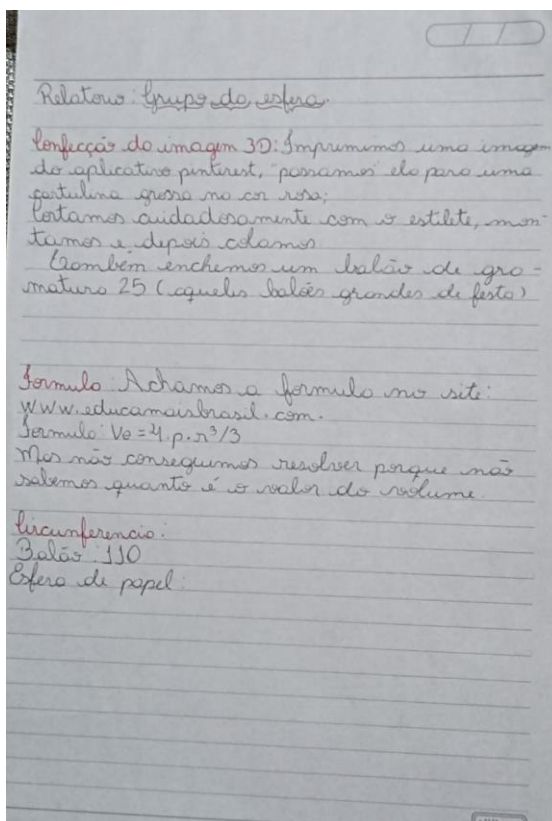 Relatorio: Grupo da esfera.
Confecção da imagem 3D: Imprimimos uma imagem
do aplicativo pinterest, "passamos" ela para uma
cartulina grossa na cor rosa;
Cortamos cuidadosamente com o estilete, mon-
tamos e depois colamos
Também enchemos um balão de gra-
matura 25 (aqueles balões grandes de festa)
Formula: Achamos a formula no site:
www.educamaisbrasil.com.
Formula: Ve = 4.p.r³/3
Mas não conseguimos resolver porque não
sabemos quanto é o valor do volume.
Circunferencia:
Balão: 110
Esfera de papel: